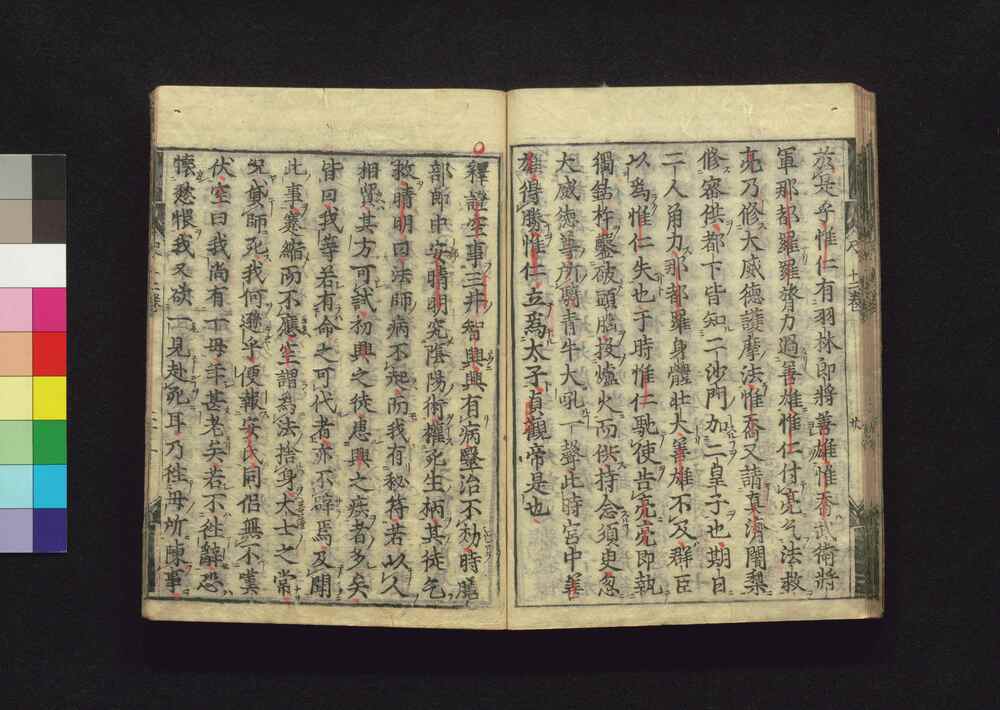 於是乎惟仁有羽林郎將善雄惟喬武衛將
軍那都羅羅膂力過善雄惟仁付亮乞法救
亮乃修大威德護摩法惟喬又請眞濟闍梨
修密供都下皆知二沙門加二皇子也期日
二人角力那都羅身體壯大善雄不及群臣
以爲惟仁失也于時惟仁馳使告亮亮即執
獨鈷杵鑿破頭腦投爐火而供持念須臾忽
大威德尊所騎青牛大吼一聲此時宮中善
雄得勝惟仁立爲太子貞觀帝是也
釋證空事三井智興興有病毉治不効時膳
部郎中安晴明究陰陽術擢死生柄其徒乞
救晴明曰法師病不起而我有秘符若以人
相貿其方可試初興之徒患興之疾者多矣
皆曰我等若有命之可代者亦不辭焉及聞
此事蹇縮而不應空謂爲法捨身大士之常
況貿師死我何遯乎便報安氏同侶無不嘆
伏空曰我尚有一母年甚老矣若不往辭恐
懷愁恨我又欲一見赴死耳乃往母所陳事